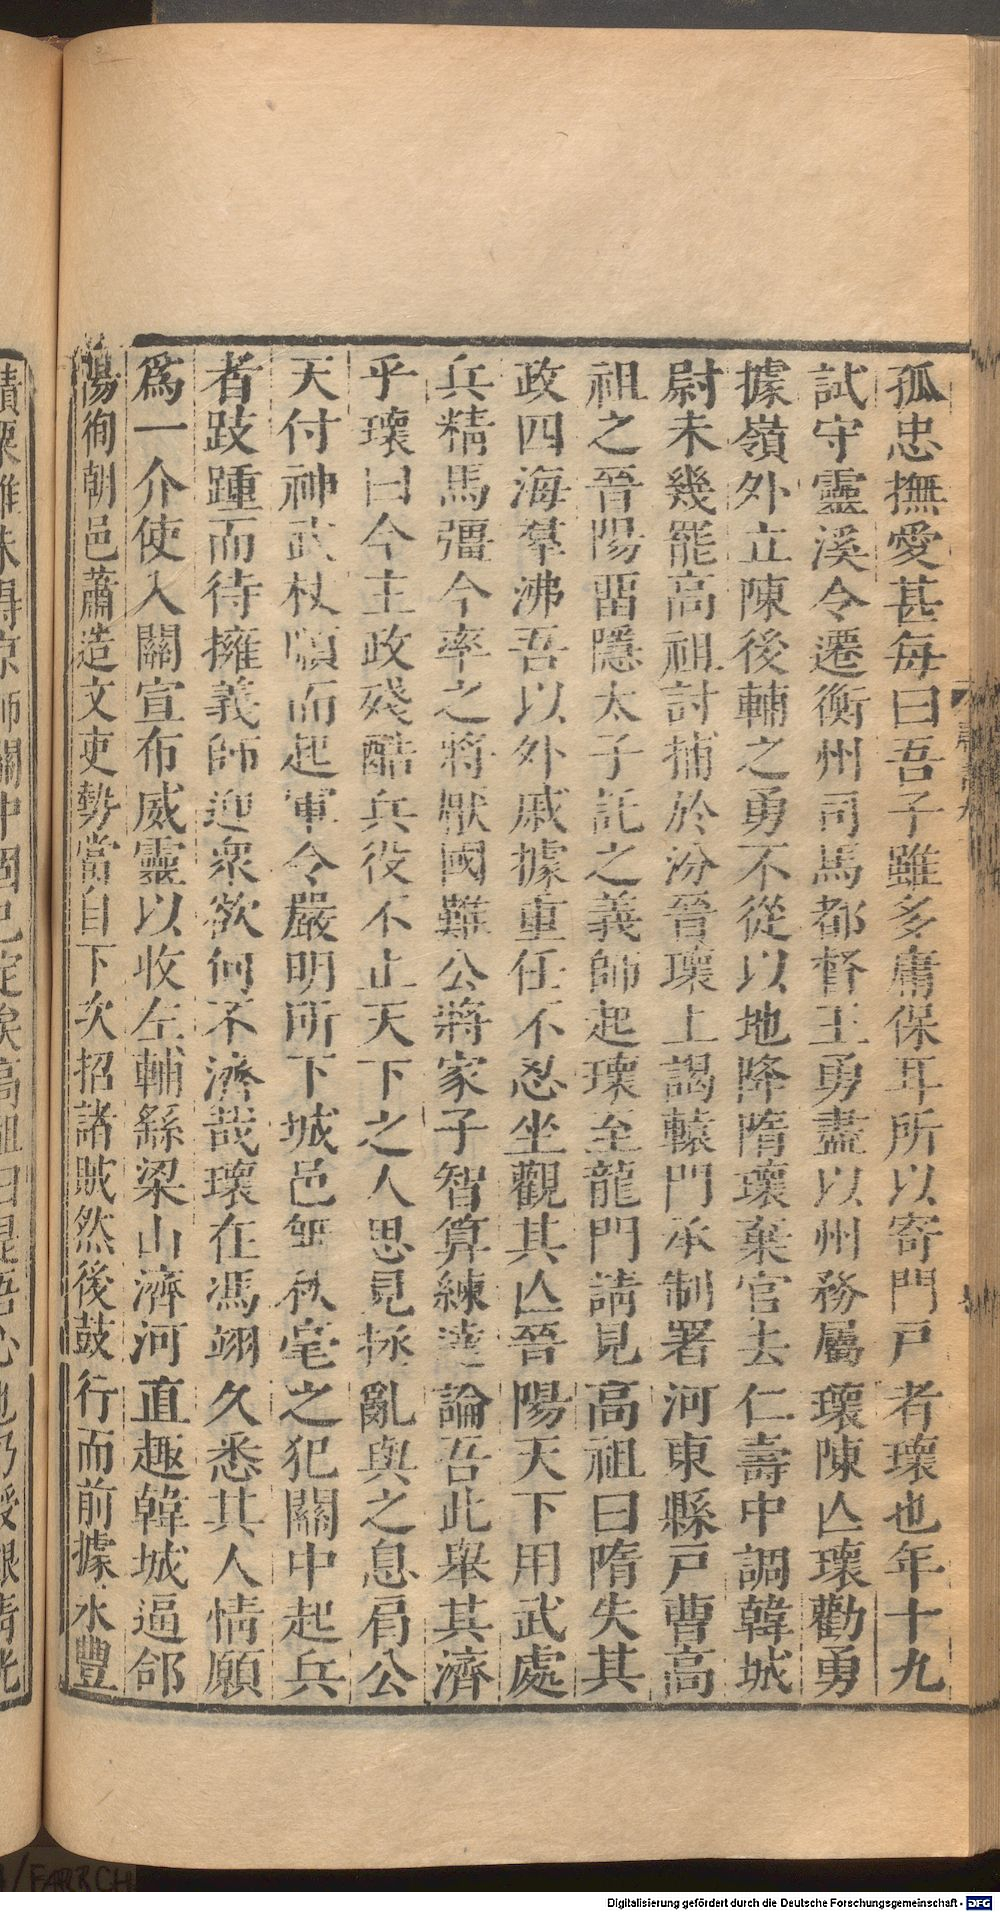 孤忠撫愛甚每曰吾子雖多庸保耳所以寄門戸者瓌也年十九
試守靈溪令遷衡州司馬都督王勇盡以州務屬瓌陳亾瓌勸勇
據嶺外立陳後輔之勇不從以地降隋瓌棄官去仁壽中調韓城
尉未幾罷高祖討捕於汾晉瓌上謁轅門承制署河東縣戸曹高
祖之晉陽畱隱太子託之義師起瓌至龍門請見高祖曰隋失其
政四海羣沸吾以外戚據重任不忍坐觀其亾晉陽天下用武處
兵精馬彊今率之將厭國難公將家子智算練達論吾此舉其濟
乎瓌曰今主政殘酷兵役不止天下之人思見拯亂與之息肩公
天付神武杖順而起軍令嚴明所下城邑無秋毫之犯關中起兵
者跂踵而待擁義師迎衆欲何不濟哉瓌在馮翊久悉其人情願
爲一介使入關宣布威靈以收左輔繇梁山濟河直趣韓城逼郃
陽徇朝邑蕭造文吏勢當自下次招諸賊然後鼓行而前據永豐